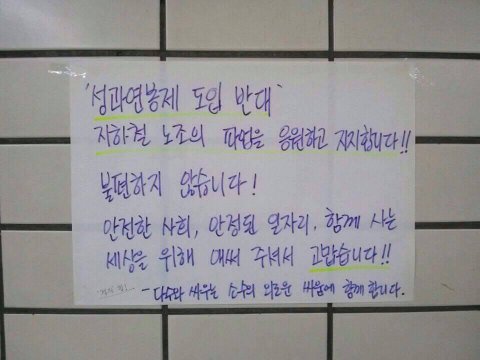 '성과연봉제 도입 반대'
지하철 노조의 파업을 응원하고 지지합니다!!
불편하지 않습니다!
안전한 사회, 안정된 일자리, 함께 사는
세상을 위해 애써 주셔서 고맙습니다!!
- 다수와 싸우는 소수의 외로운 싸움에 함께 합니다.